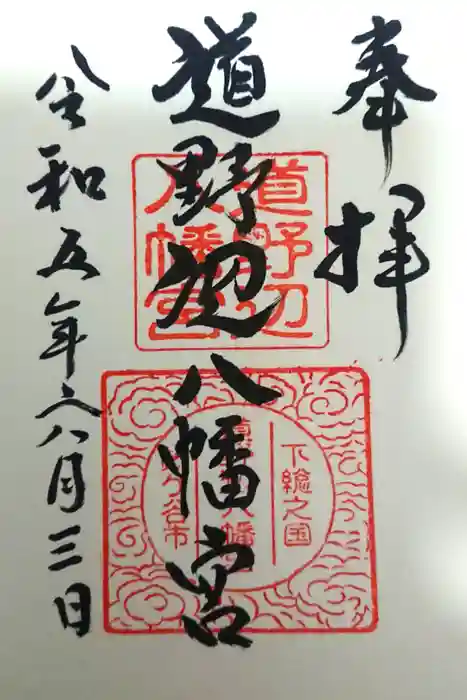 奉拝
道野辺八幡宮
令和五年八月三日
道野辺
八幡宮
下総之国
八幡
谷市